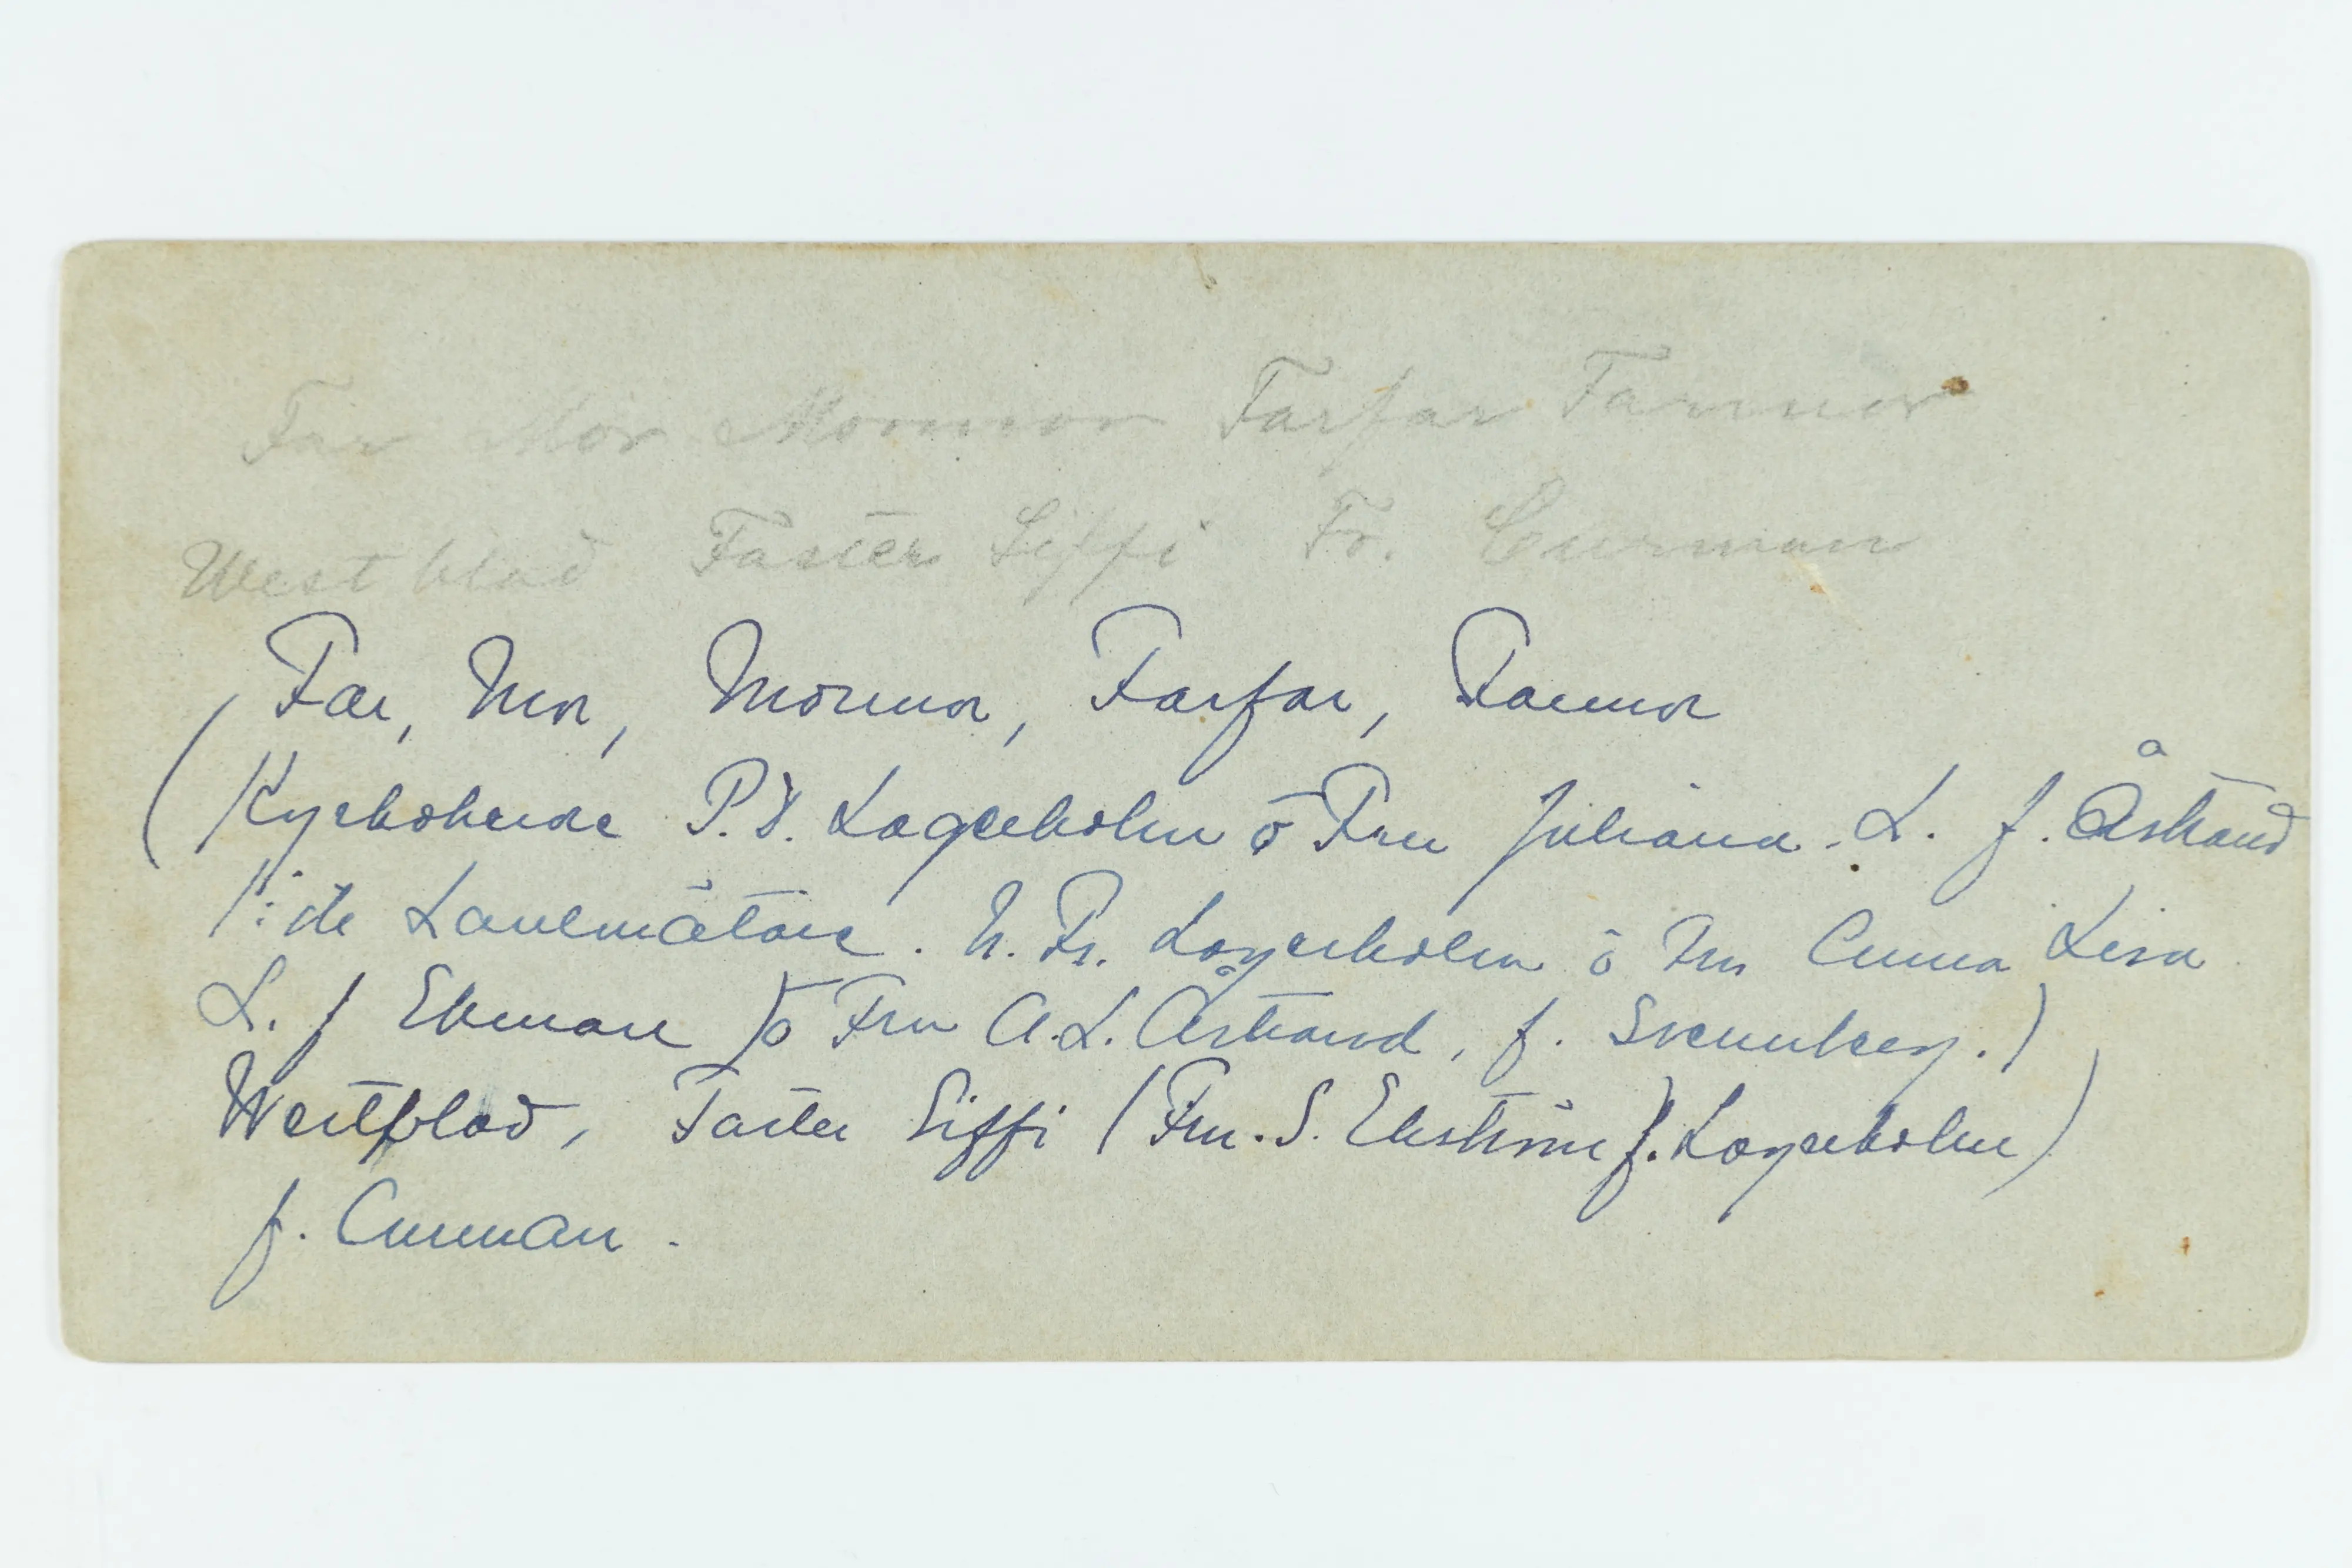 Far Mor Mormor Farfar Farmor
Westblad Faster Siffi Fr. Curman
Far, Mor, Mormor, Farfar, Farmor
(Kyrkoherde P. D. Lagerholm o Fru Juliana. L. f. Åstrand
1:ste Lantmätare. N. Fr. Lagerholm o Fru Anna Lisa
L. f Ekman) o Fru A. L. Åstrand, f. Svennberg.)
Westblad, Faster Siffi (Fru. S. Ekström f. Lagerholm)
f. Curman.